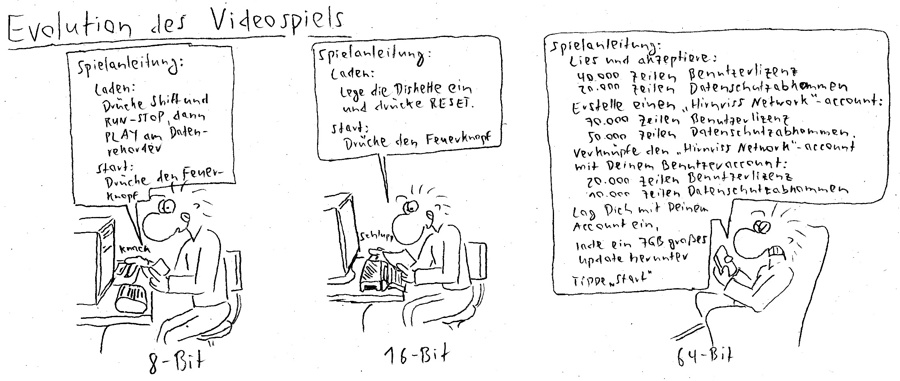 Evolution des Videospiels
Spielanleitung:
Laden:
Drücke Shift und
RUN-STOP, dann
PLAY am Daten-
rekorder
Start:
Drücke den Feuer-
Knopf
Knack
8-Bit
Spielanleitung:
Laden:
Lege die Diskette ein
und drücke RESET.
Start:
Drücke den Feuerknopf
Schlupp
16-Bit
Spielanleitung:
Lies und akzeptiere:
40.000 Zeilen Benutzerlizenz
20.000 Zeilen Datenschutzabkommen
Erstelle einen „Hirnriss Network"-account:
70.000 Zeilen Benutzerlizenz
50.000 Zeilen Datenschutzabkommen.
Verknüpfe den „Hirnriss Network"-account
mit Deinem Benutzeraccount:
20.000 Zeilen Benutzerlizenz
10.000 Zeilen Datenschutzabkommen
Log Dich mit Deinem
Account ein,
lade ein 7GB großes
Update herunter
Tippe „Start"
64-Bit